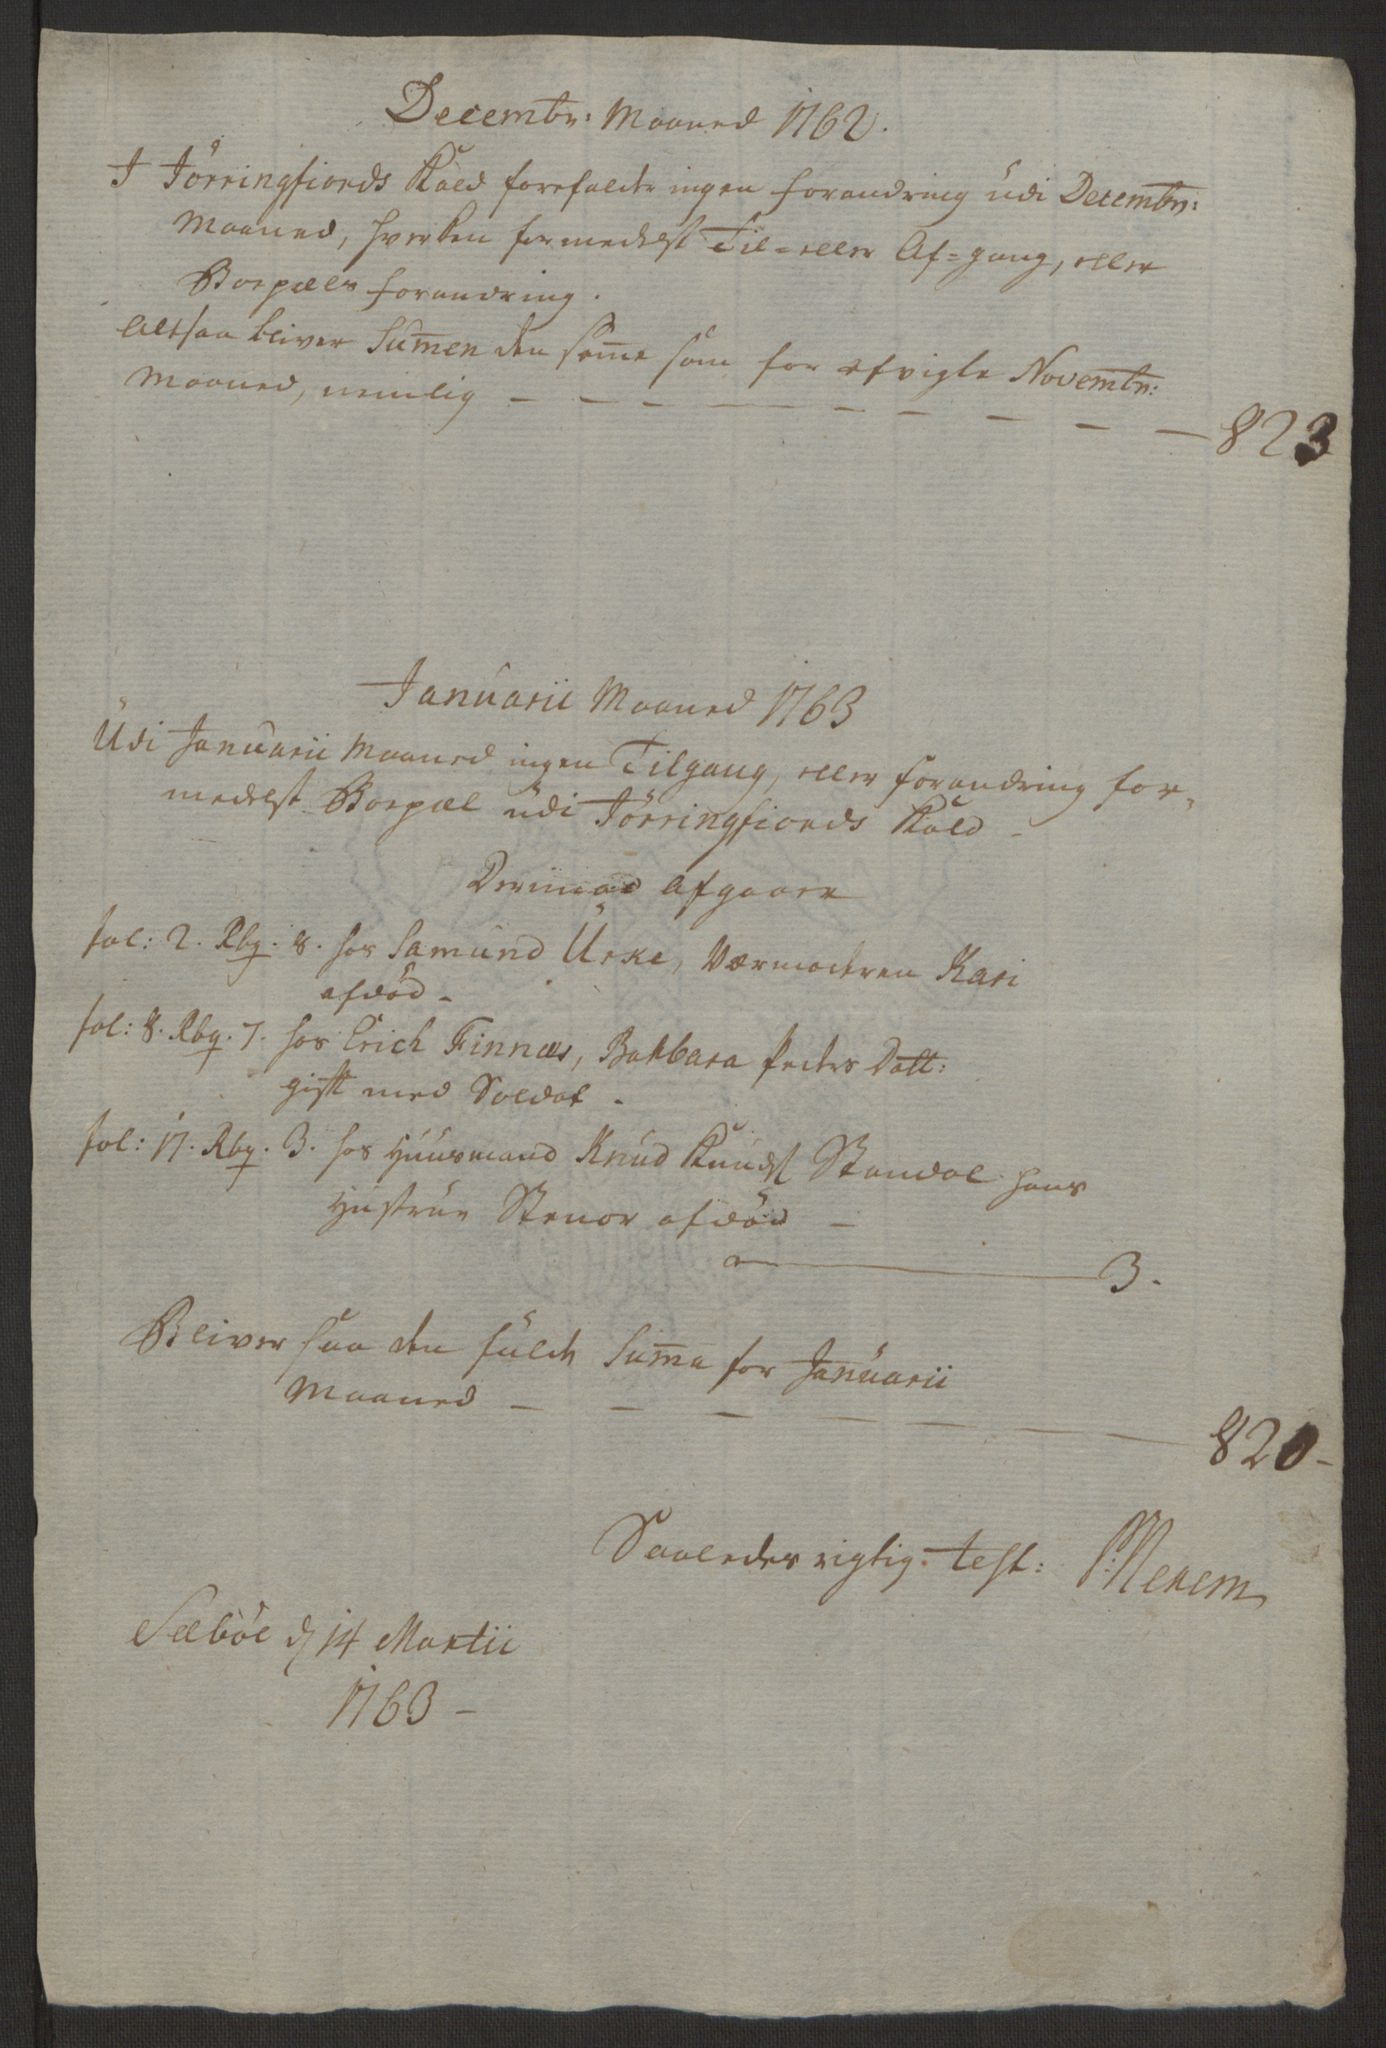 Decembr: Maaned 1762.
I Jörringfiords Kald forefaldte ingen Forandring udi Decembr:
Maaned, hverken formedelst Til- eller Af-gang, eller
Boepæls Forandring.
Altsaa bliver Sum̅en den sam̅e som for afvigte Novembr:
Maaned, nemlig - - - - - - - - - 823
Januarii Maaned 1763
Udi Januarii Maaned ingen Tilgang, eller Forandring for-
medelst Boepæl udi Jörringfiords Kald -
Derimod Afgaaer
fol: 2. Rbq. 8. hos Samund Urke, Værmoderen Kari
afdöd -
fol: 8. Rbq. 7. hos Erich Finnæs, Barbara Peders Datt:
gift med Soldat -
fol: 17. Rbq. 3. hos Huusmand Knud Knuds: Standal hans
Hustrue Stenor afdöd -
3.
Bliver saa den fulde Sum̅a for Januarii
Maaned - - - - - - 820 -
Saaledes rigtig test:
Sæböe d 14 Martii
1763 -